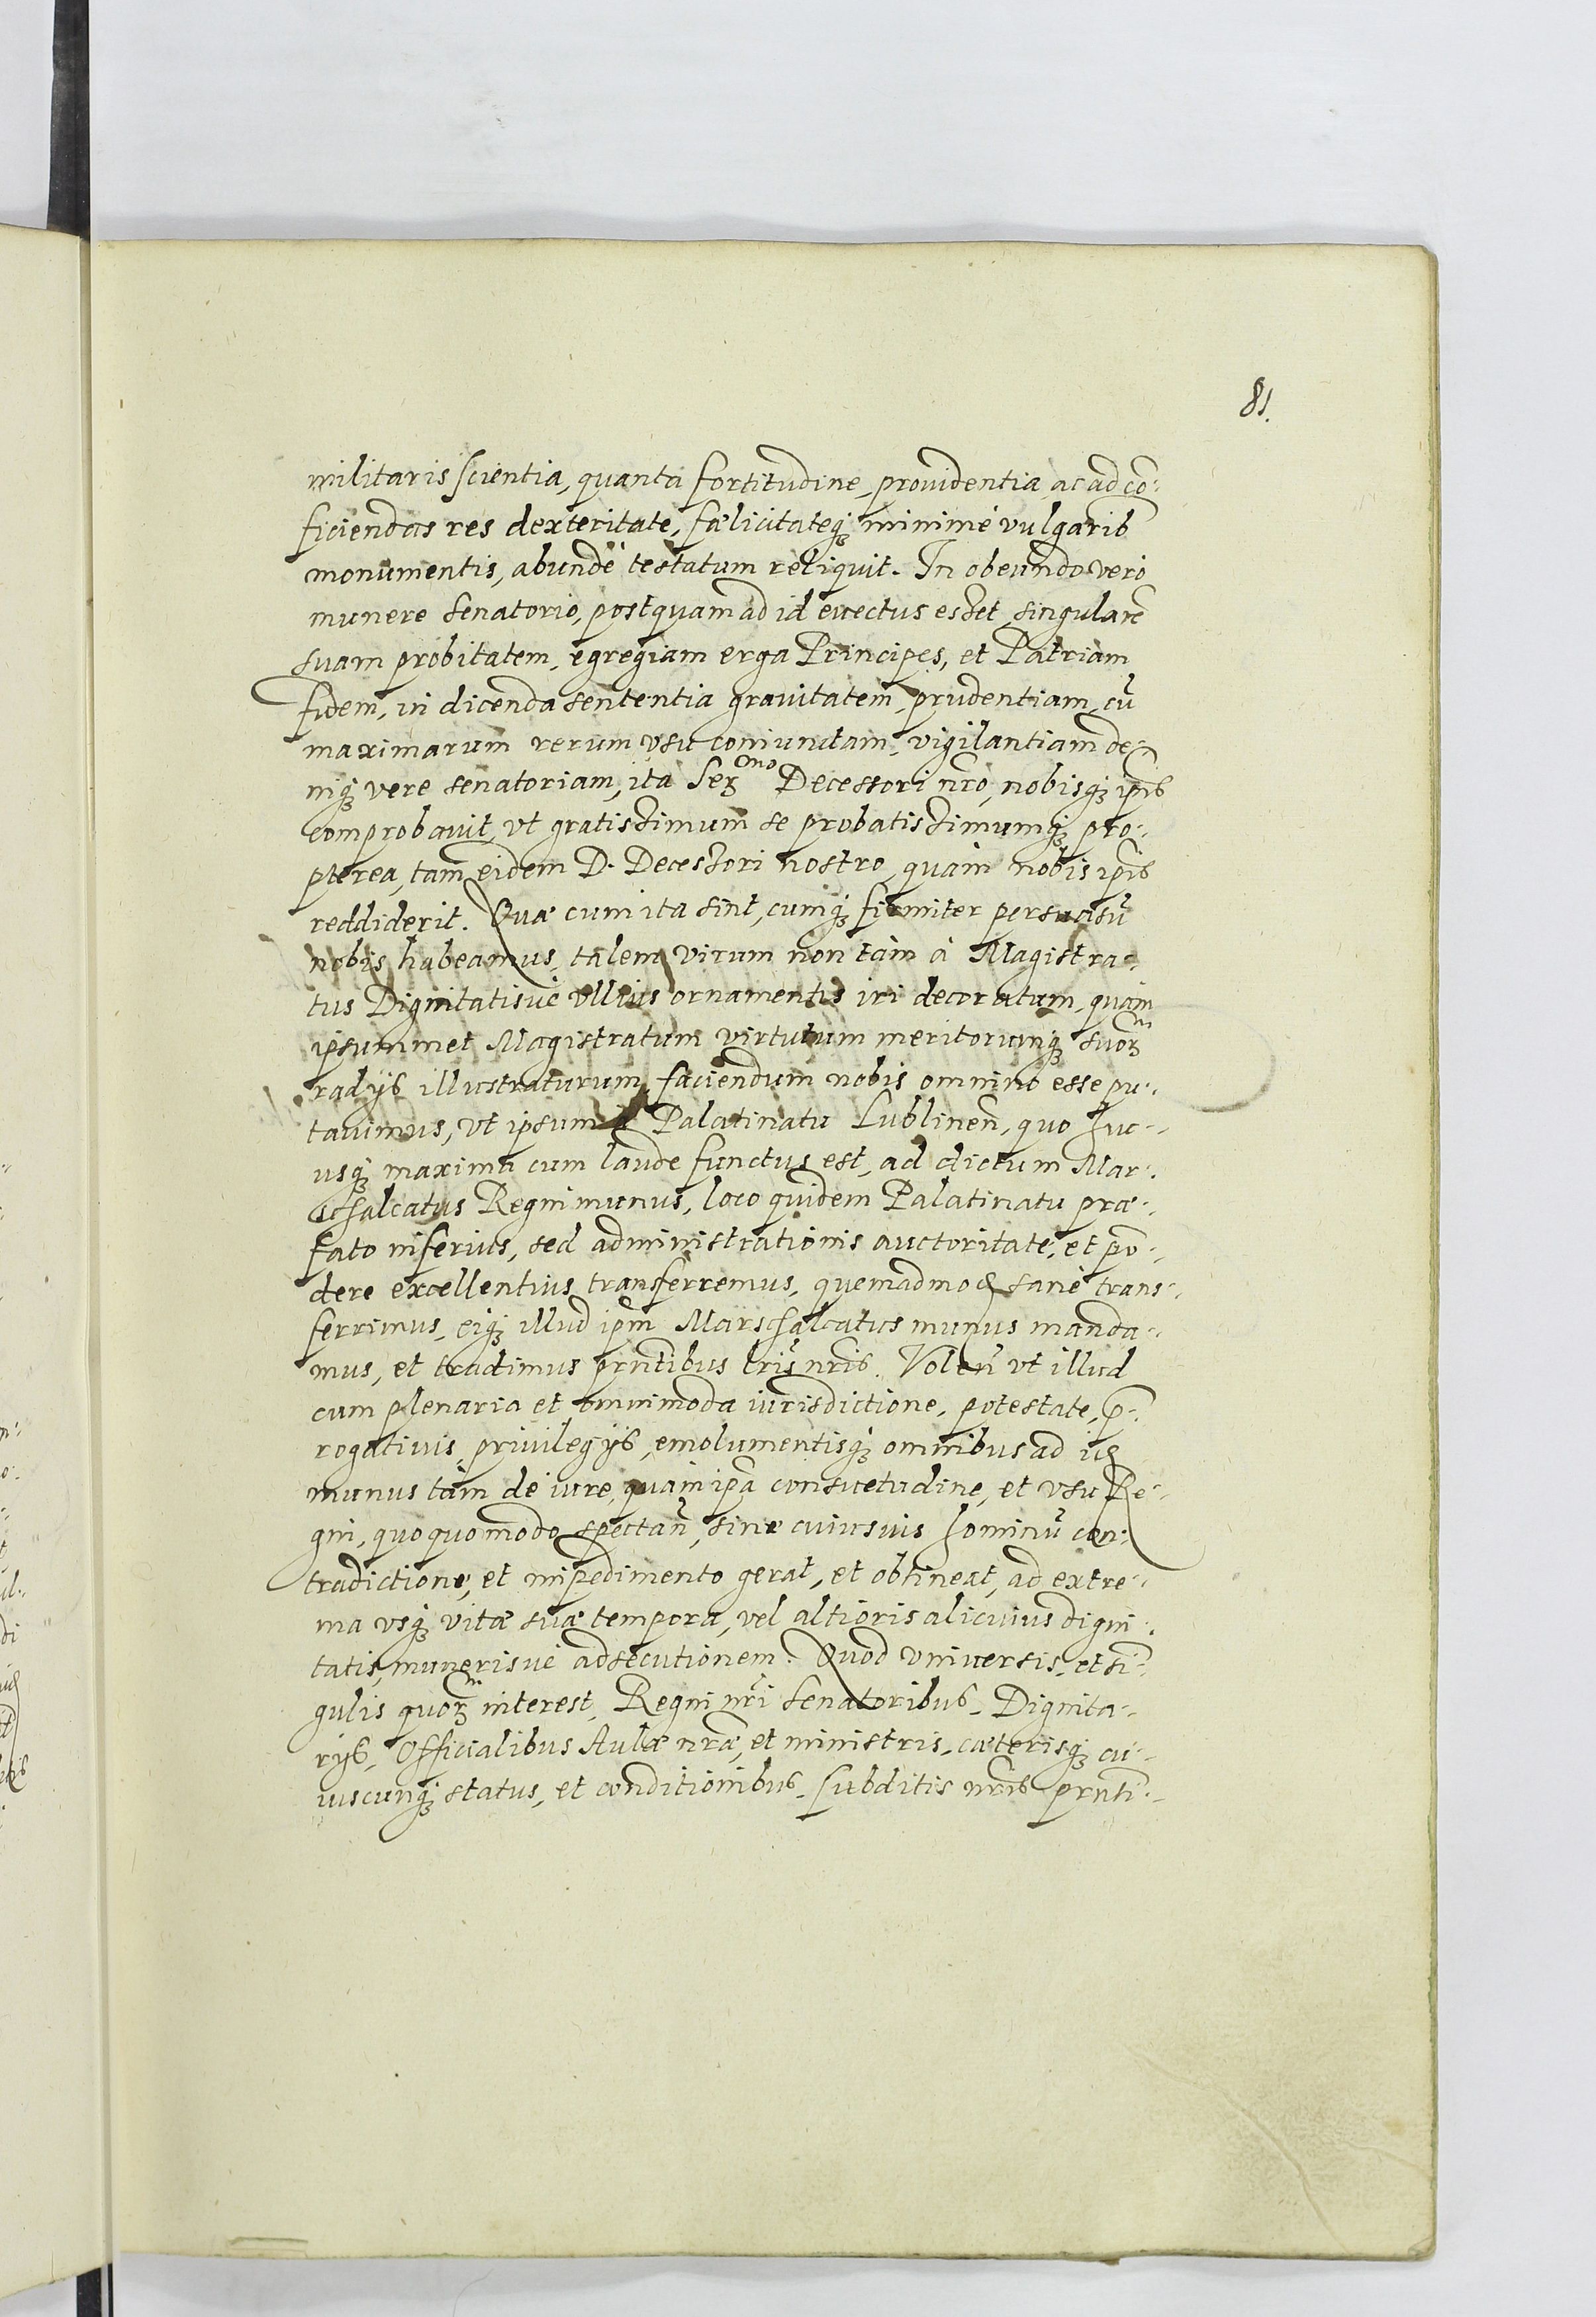 81.
militaris scientia, quanta fortitudine, prouidentia, ac ad cõ-
ficiendas res dexteritate, fœlicitateq́ꝫ minimè vulgarib
monumentis, abundè testatum reliquit. In obeundo verò
munere senatorio, postquam ad id euectus esset, singularẽ
suam probitatem, egregiam erga Principes, et Patriam
fidem, in dicenda sententia grauitatem, prudentiam, cũ
maximarum rerum vsu coniunctam, vigilantiam de-
niq́ꝫ vere senatoriam, ita Serᵐᵒ Decessori nr̃o, nobisq́ꝫ ip̃is
comprobauit, vt gratissimum se probatissimumq́ꝫ pro-
pterea, tam eidem D. Decessori nostro, quàm nobis ip̃is
reddiderit. Quæ cum ita sint, cumq́ꝫ firmiter persuasũ
nobis habeamus, talem virum non tàm à Magistra-
tus Dignitatisuè vllius ornamentis iri decoratum, quàm
ipsummet Magistratum virtutum meritorumq́ꝫ suorᵐ
radijs illustraturum, faciendum nobis omnino esse pu-
tauimus, vt ipsum à Palatinatu Lublineñ, quo huc-
usq́ꝫ maxima cum laude functus est, ad dictum Mar-
schalcatus Regni munus, loco quidem Palatinatu præ-
fato inferius, sed administrationis auctoritate, et põ-
dere excellentius, transferremus, quemadmod sanè trans-
ferrimus, eiq́ꝫ illud ip̃m Marschalcatus munus manda-
mus, et tradimus pñtibus lr̃is nr̃is. Voleñ vt illud
cum plenaria et omnimoda iurisdictione, potestate, p̃-
rogatiuis, priuilegijs, emolumentisq́ꝫ omnibus ad id
munus tàm de iure, quàm ip̃a consuetudine, et vsu Re-
gni, quoquomodo spectañ, sine cuiusuis hominũ con-
tradictione, et impedimento gerat, et obtineat, ad extre-
ma vsq́ꝫ vitæ suæ tempora, vel altioris alicuius digni-
tatis, munerisuè adsecutionem. Quod vniuersis, et sĩ-
gulis quorᵐ interest, Regni nr̃i Senatoribus, Dignita-
rijs, Officialibus Aulæ nr̃æ, et ministris, cæterisq́ꝫ cu-
iuscunq́ꝫ status, et conditionibus, subditis nr̃is pñti-